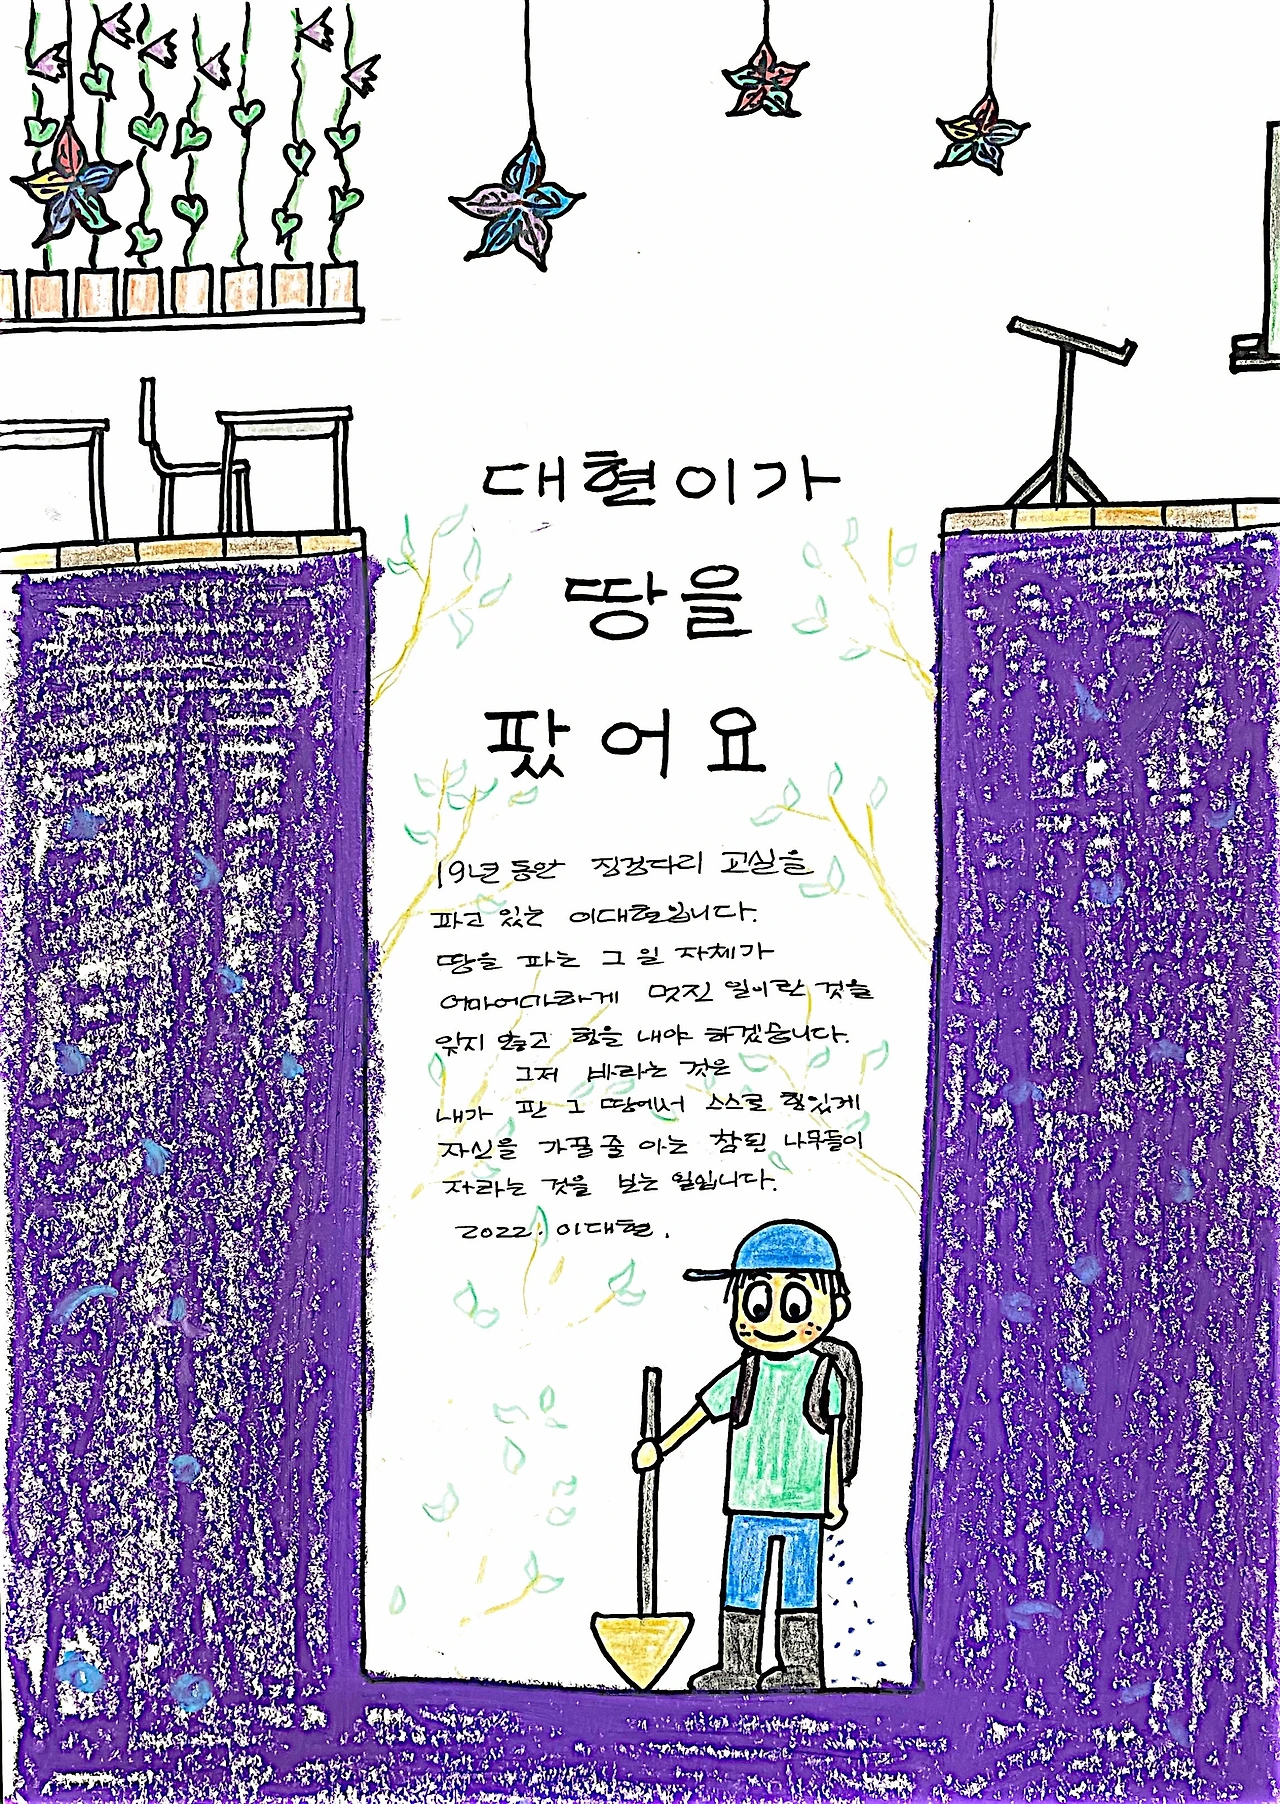 대현이가
땅을
팠어요
19년 동안 징검다리 교실을
파고 있는 이대현입니다.
땅을 파는 그 일 자체가
어마어마하게 멋진 일이란 것을
잊지 않고 힘을 내야 하겠습니다.
그저 바라는 것은
내가 판 그 땅에서 스스로 힘있게
자신을 가꿀 줄 아는 참된 나무들이
자라는 것을 보는 일입니다.
2022. 이대현.